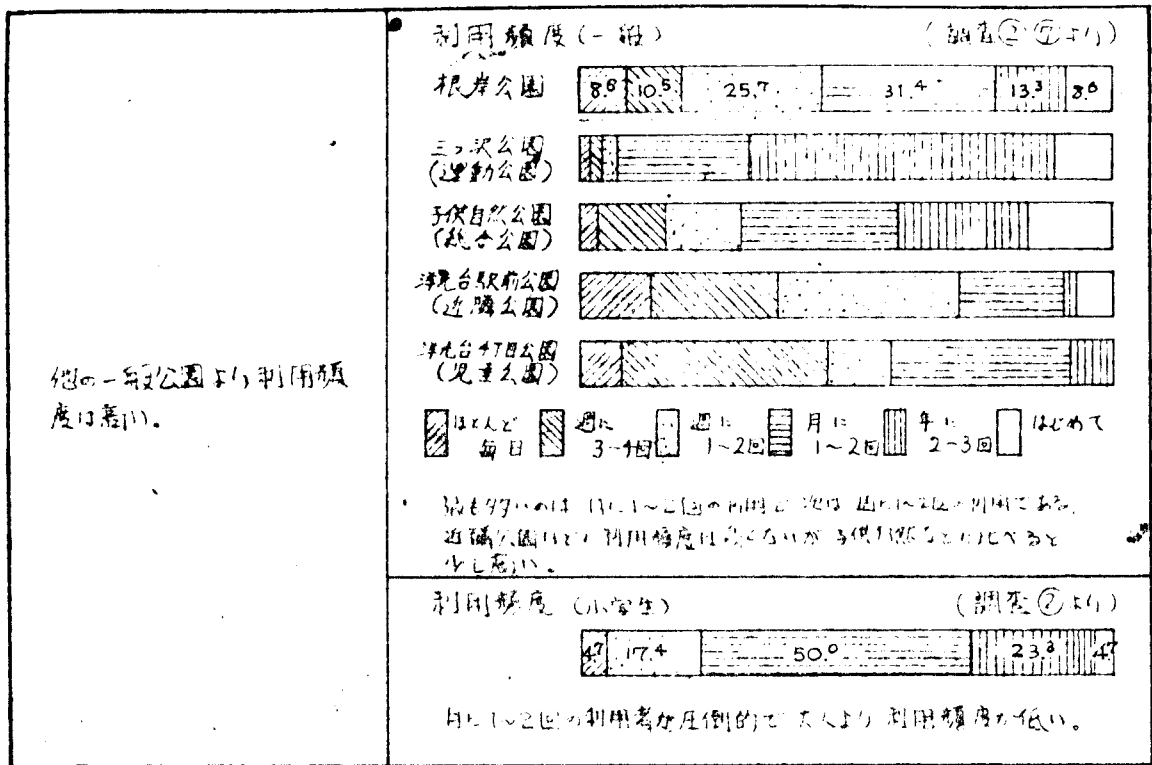 他の一般公園より利用頻
度は高い。
利用頻度(一般) (調査②⑦より)
根岸公園 8.6 10.5 25.7 31.4 13.3 8.6
三ツ沢公園
(運動公園)
子供自然公園
(総合公園)
洋光台駅前公園
(近隣公園)
洋光台4丁目公園
(児童公園)
ほとんど毎日 週に3~4回 週に1~2回 月に1~2回 年に2~3回 はじめて
最も多いのは 月に1~2回の利用で 次は 週に1~2回の利用である。
近隣公園ほど 利用頻度は高くないが 子供自然などに比べると
少し高い。
利用頻度 (小学生) (調査②より)
4.7 17.4 50.0 23.3 4.7
月に1~2回の利用者が圧倒的で 大人より 利用頻度が低い。